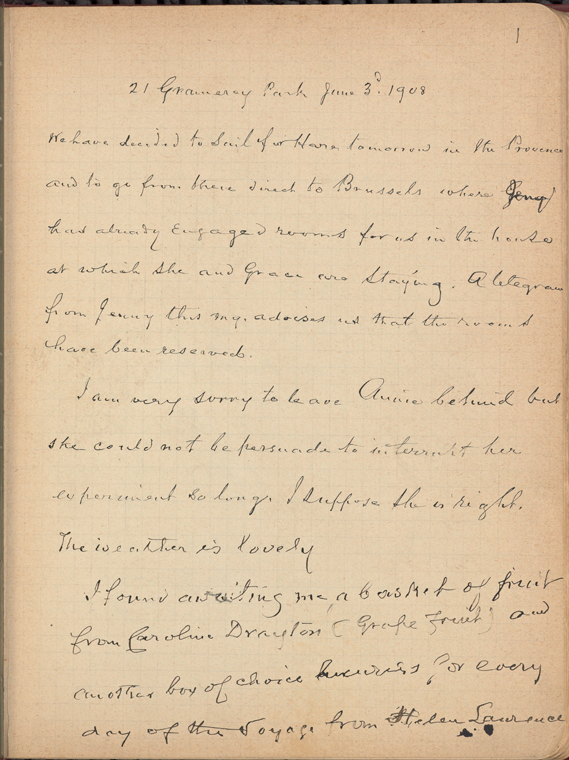 1
21 Gramercy Park June 3d. 1908
We have decided to sail for Havre tomorrow in the Provence
and to go from there direct to Brussels where Jenny
has already engaged rooms for us in the house
at which she and Grace are staying. A telegram
from Jenny this mg. advises us that the rooms
have been reserved.
I am very sorry to leave Annie behind but
she could not be persuade to interrupt her
experiment so long. I suppose she is right.
The weather is lovely
I found awaiting me, a basket of fruit
from Caroline Drayton (Grape Fruit) and
another box of choice luxuries for every
day of the voyage from Helen Lawrence